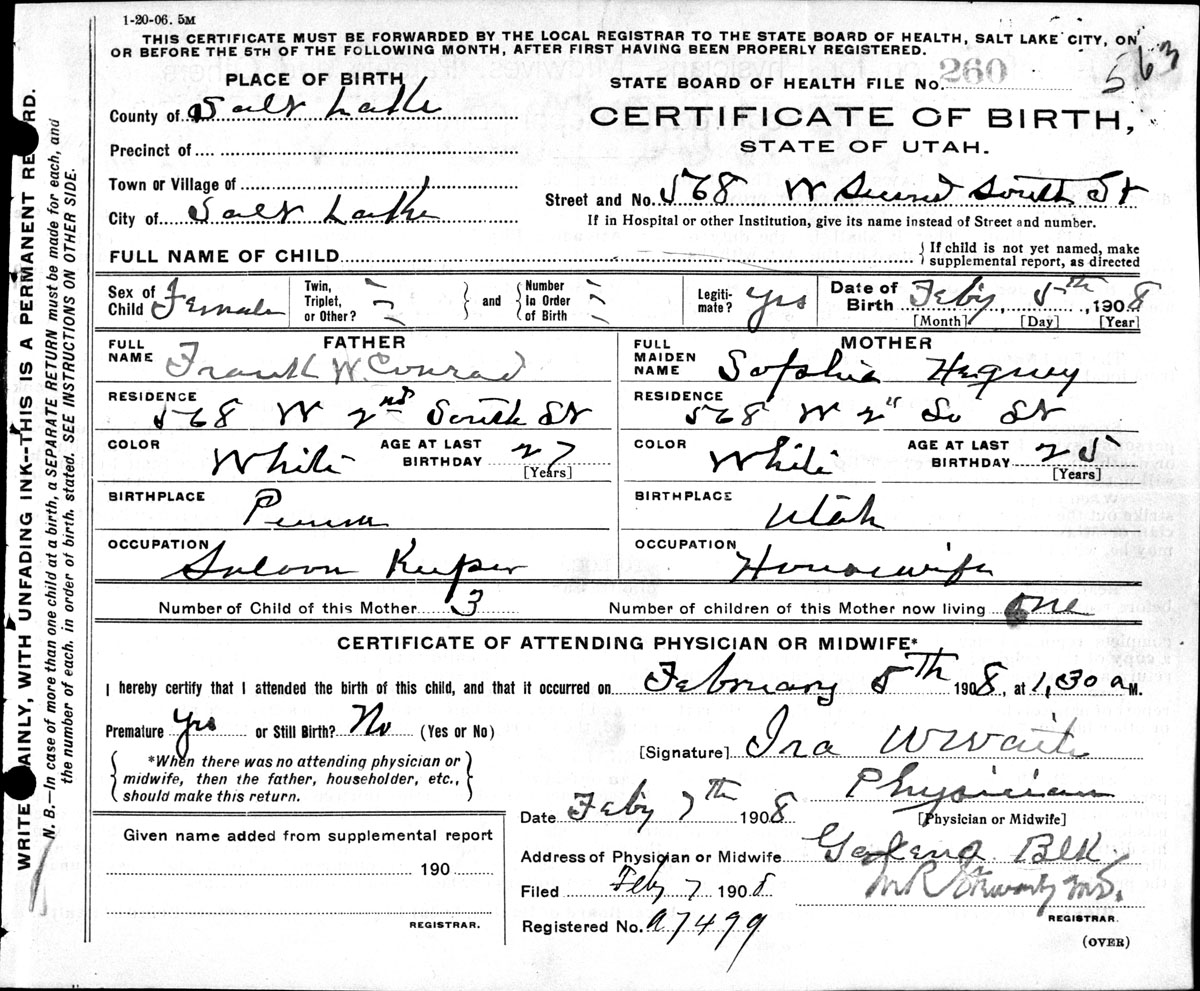 1-20-06. 5M
THIS CERTIFICATE MUST BE FORWARDED BY THE LOCAL REGISTRAR TO THE STATE BOARD OF HEALTH, SALT LAKE CITY, ON
OR BEFORE THE 5TH OF THE FOLLOWING MONTH, AFTER FIRST HAVING BEEN PROPERLY REGISTERED.
WRITE PLAINLY, WITH UNFADING INK--THIS IS A PERMANENT RECORD.
N. B.—In case of more than one child at a birth, a SEPARATE RETURN must be made for each, and
the number of each, in order of birth, stated. SEE INSTRUCTIONS ON OTHER SIDE.
PLACE OF BIRTH
County of Salt Lake
Precinct of
Town or Village of
City of Salt Lake
STATE BOARD OF HEALTH FILE No. 260
563
CERTIFICATE OF BIRTH,
STATE OF UTAH.
Street and No. 568 W Second South St
If in Hospital or other Institution, give its name instead of Street and number.
FULL NAME OF CHILD
If child is not yet named, make
supplemental report, as directed
Sex of Child Female
Twin, Triplet, or Other?
and
Number In Order of Birth
Legitimate? yes
Date of Birth Feby 5th 1908
[Month] [Day] [Year]
FATHER
FULL NAME Frank W. Conrad
RESIDENCE 568 W 2nd South St
COLOR White AGE AT LAST BIRTHDAY 27
[Years]
BIRTHPLACE Penna
OCCUPATION Saloon Keeper
MOTHER
FULL MAIDEN NAME Sophia Hegney
RESIDENCE 568 W 2" So St
COLOR White AGE AT LAST BIRTHDAY 25
[Years]
BIRTHPLACE Utah
OCCUPATION Housewife
Number of Child of this Mother 3 Number of children of this Mother now living one
CERTIFICATE OF ATTENDING PHYSICIAN OR MIDWIFE*
I hereby certify that I attended the birth of this child, and that it occurred on February 5th 1908, at 1,30 a M.
Premature Yes or Still Birth? No (Yes or No)
*When there was no attending physician or
midwife, then the father, householder, etc.,
should make this return.
[Signature] Ira W Waite
Physician
[Physician or Midwife]
Date Feby 7th 1908
Address of Physician or Midwife Galena Blk
Filed Feby 7 1908
M R Stewart M.D.
REGISTRAR.
Registered No. a7499
(OVER)
Given name added from supplemental report
190
REGISTRAR.